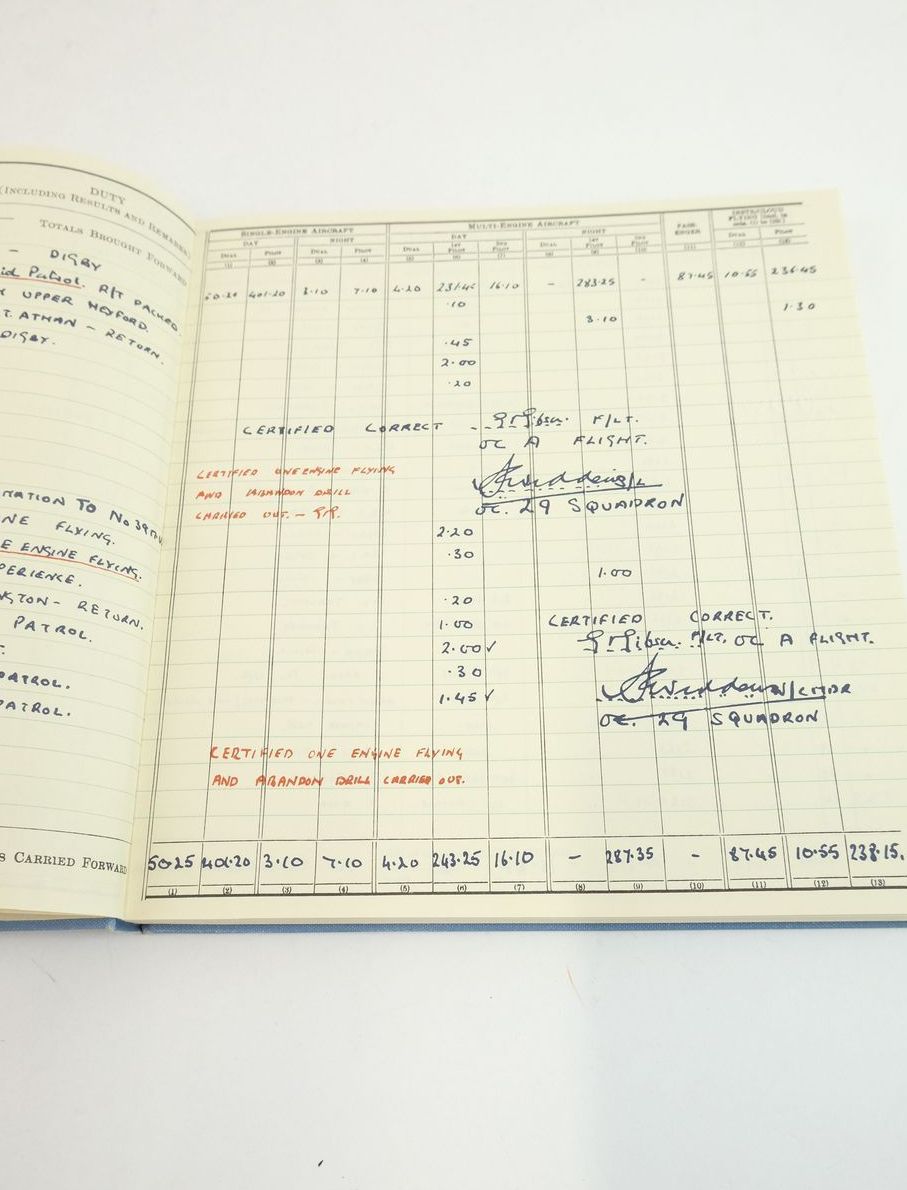 DUTY
(INCLUDING RESULTS AND REMARKS)
TOTALS BROUGHT FORWARD
- DIGBY
Patrol. R/T PACKED
UPPER HEYFORD.
T. ATHAN - RETURN.
DIGBY.
TO No 39
NE FLYING.
E ENGINE FLYING.
PERIENCE.
GTON - RETURN.
PATROL.
PATROL.
PATROL.
S CARRIED FORWARD
SINGLE-ENGINE AIRCRAFT MULTI-ENGINE AIRCRAFT PASS-ENGER
DAY NIGHT DAY NIGHT
DUAL PILOT DUAL PILOT DUAL 1ST PILOT 2ND PILOT DUAL 1ST PILOT 2ND PILOT DUAL PILOT
(1) (2) (3) (4) (5) (6) (7) (8) (9) (10) (11) (12) (13)
50.20 401.20 3.10 7.10 4.20 231.45 16.10 - 283.25 - 87.45 10.55 236.45
.10 1.30
3.10
.45
2.00
.20
CERTIFIED CORRECT - G P Gibson. F/LT.
OC A FLIGHT.
CERTIFIED ONE ENGINE FLYING
AND ABANDON DRILL
CARRIED OUT. -
OC. 29 SQUADRON
2.20
.30
1.00
.20
1.00 CERTIFIED CORRECT.
2.00 ✓ G P Gibson. F/LT. OC A FLIGHT.
.30
1.45 ✓ W/CMDR
OC. 29 SQUADRON
CERTIFIED ONE ENGINE FLYING
AND ABANDON DRILL CARRIED OUT.
50.25 401.20 3.10 7.10 4.20 243.25 16.10 - 287.35 - 87.45 10.55 238.15.
(1) (2) (3) (4) (5) (6) (7) (8) (9) (10) (11) (12) (13)